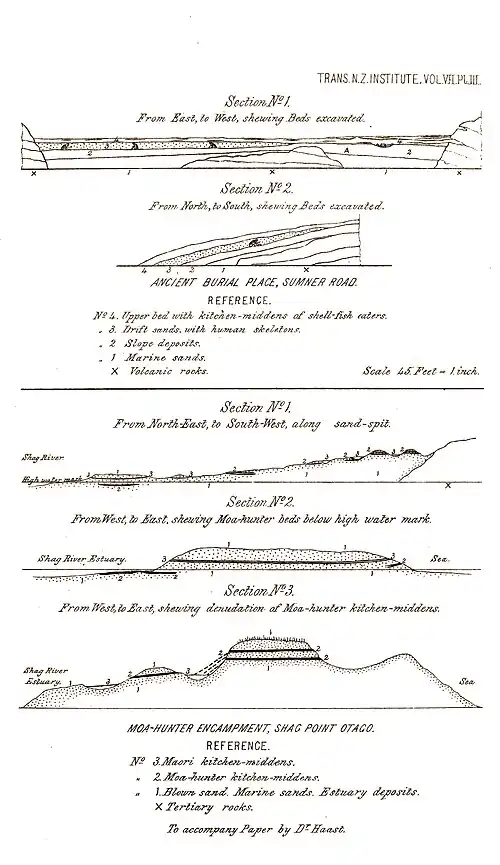 TRANS. N.Z. INSTITUTE, VOL. VII. Pl. III.
Section No. 1.
From East, to West, shewing Beds excavated.
3
4
2
A
2
X 1 X 1 X
Section No. 2.
From North, to South, shewing Beds excavated.
4 3 2 1 X
ANCIENT BURIAL PLACE, SUMNER ROAD.
REFERENCE.
No. 4. Upper bed with kitchen-middens of shell-fish eaters.
„ 3. Drift sands. with human skeletons.
„ 2 Slope deposits.
„ 1 Marine sands.
X Volcanic rocks. Scale 45. Feet = 1 inch.
Section No. 1.
From North-East, to South-West, along sand-spit.
Shag River
High water mark
3 1 3 3 2 3 2 3 2 3 2
2 1 1 X
Section No. 2.
From West, to East, shewing Moa-hunter beds below high water mark.
Shag River Estuary. 3 1 3 Sea.
1 2 1 2
Section No. 3.
From West, to East, shewing denudation of Moa-hunter kitchen-middens.
1
Shag River
Estuary. 1 3 2 1 3 2 2
1 Sea
MOA-HUNTER ENCAMPMENT, SHAG POINT OTAGO.
REFERENCE.
No. 3. Maori kitchen-middens.
„ 2. Moa-hunter kitchen-middens.
„ 1. Blown sand. Marine sands. Estuary deposits.
X Tertiary rocks.
To accompany Paper by Dr. Haast.